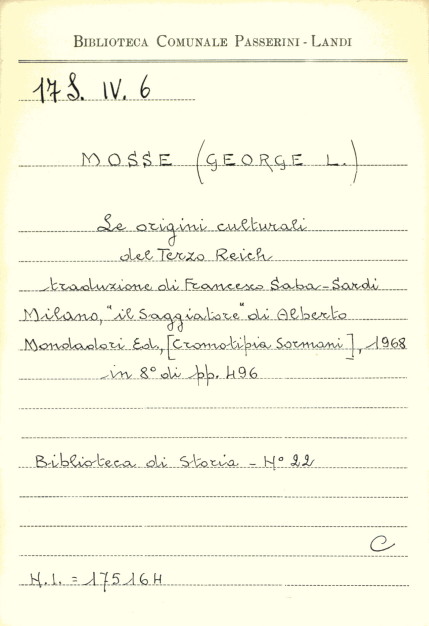 BIBLIOTECA COMUNALE PASSERINI - LANDI
17 S. IV. 6
MOSSE (GEORGE L.)
Le origini culturali
del Terzo Reich
traduzione di Francesco Saba-Sardi
Milano, "il Saggiatore" di Alberto
Mondadori Ed., [Cromotipia Sormani], 1968
in 8° di pp. 496
Biblioteca di Storia - N° 22
C
N.I. = 175164